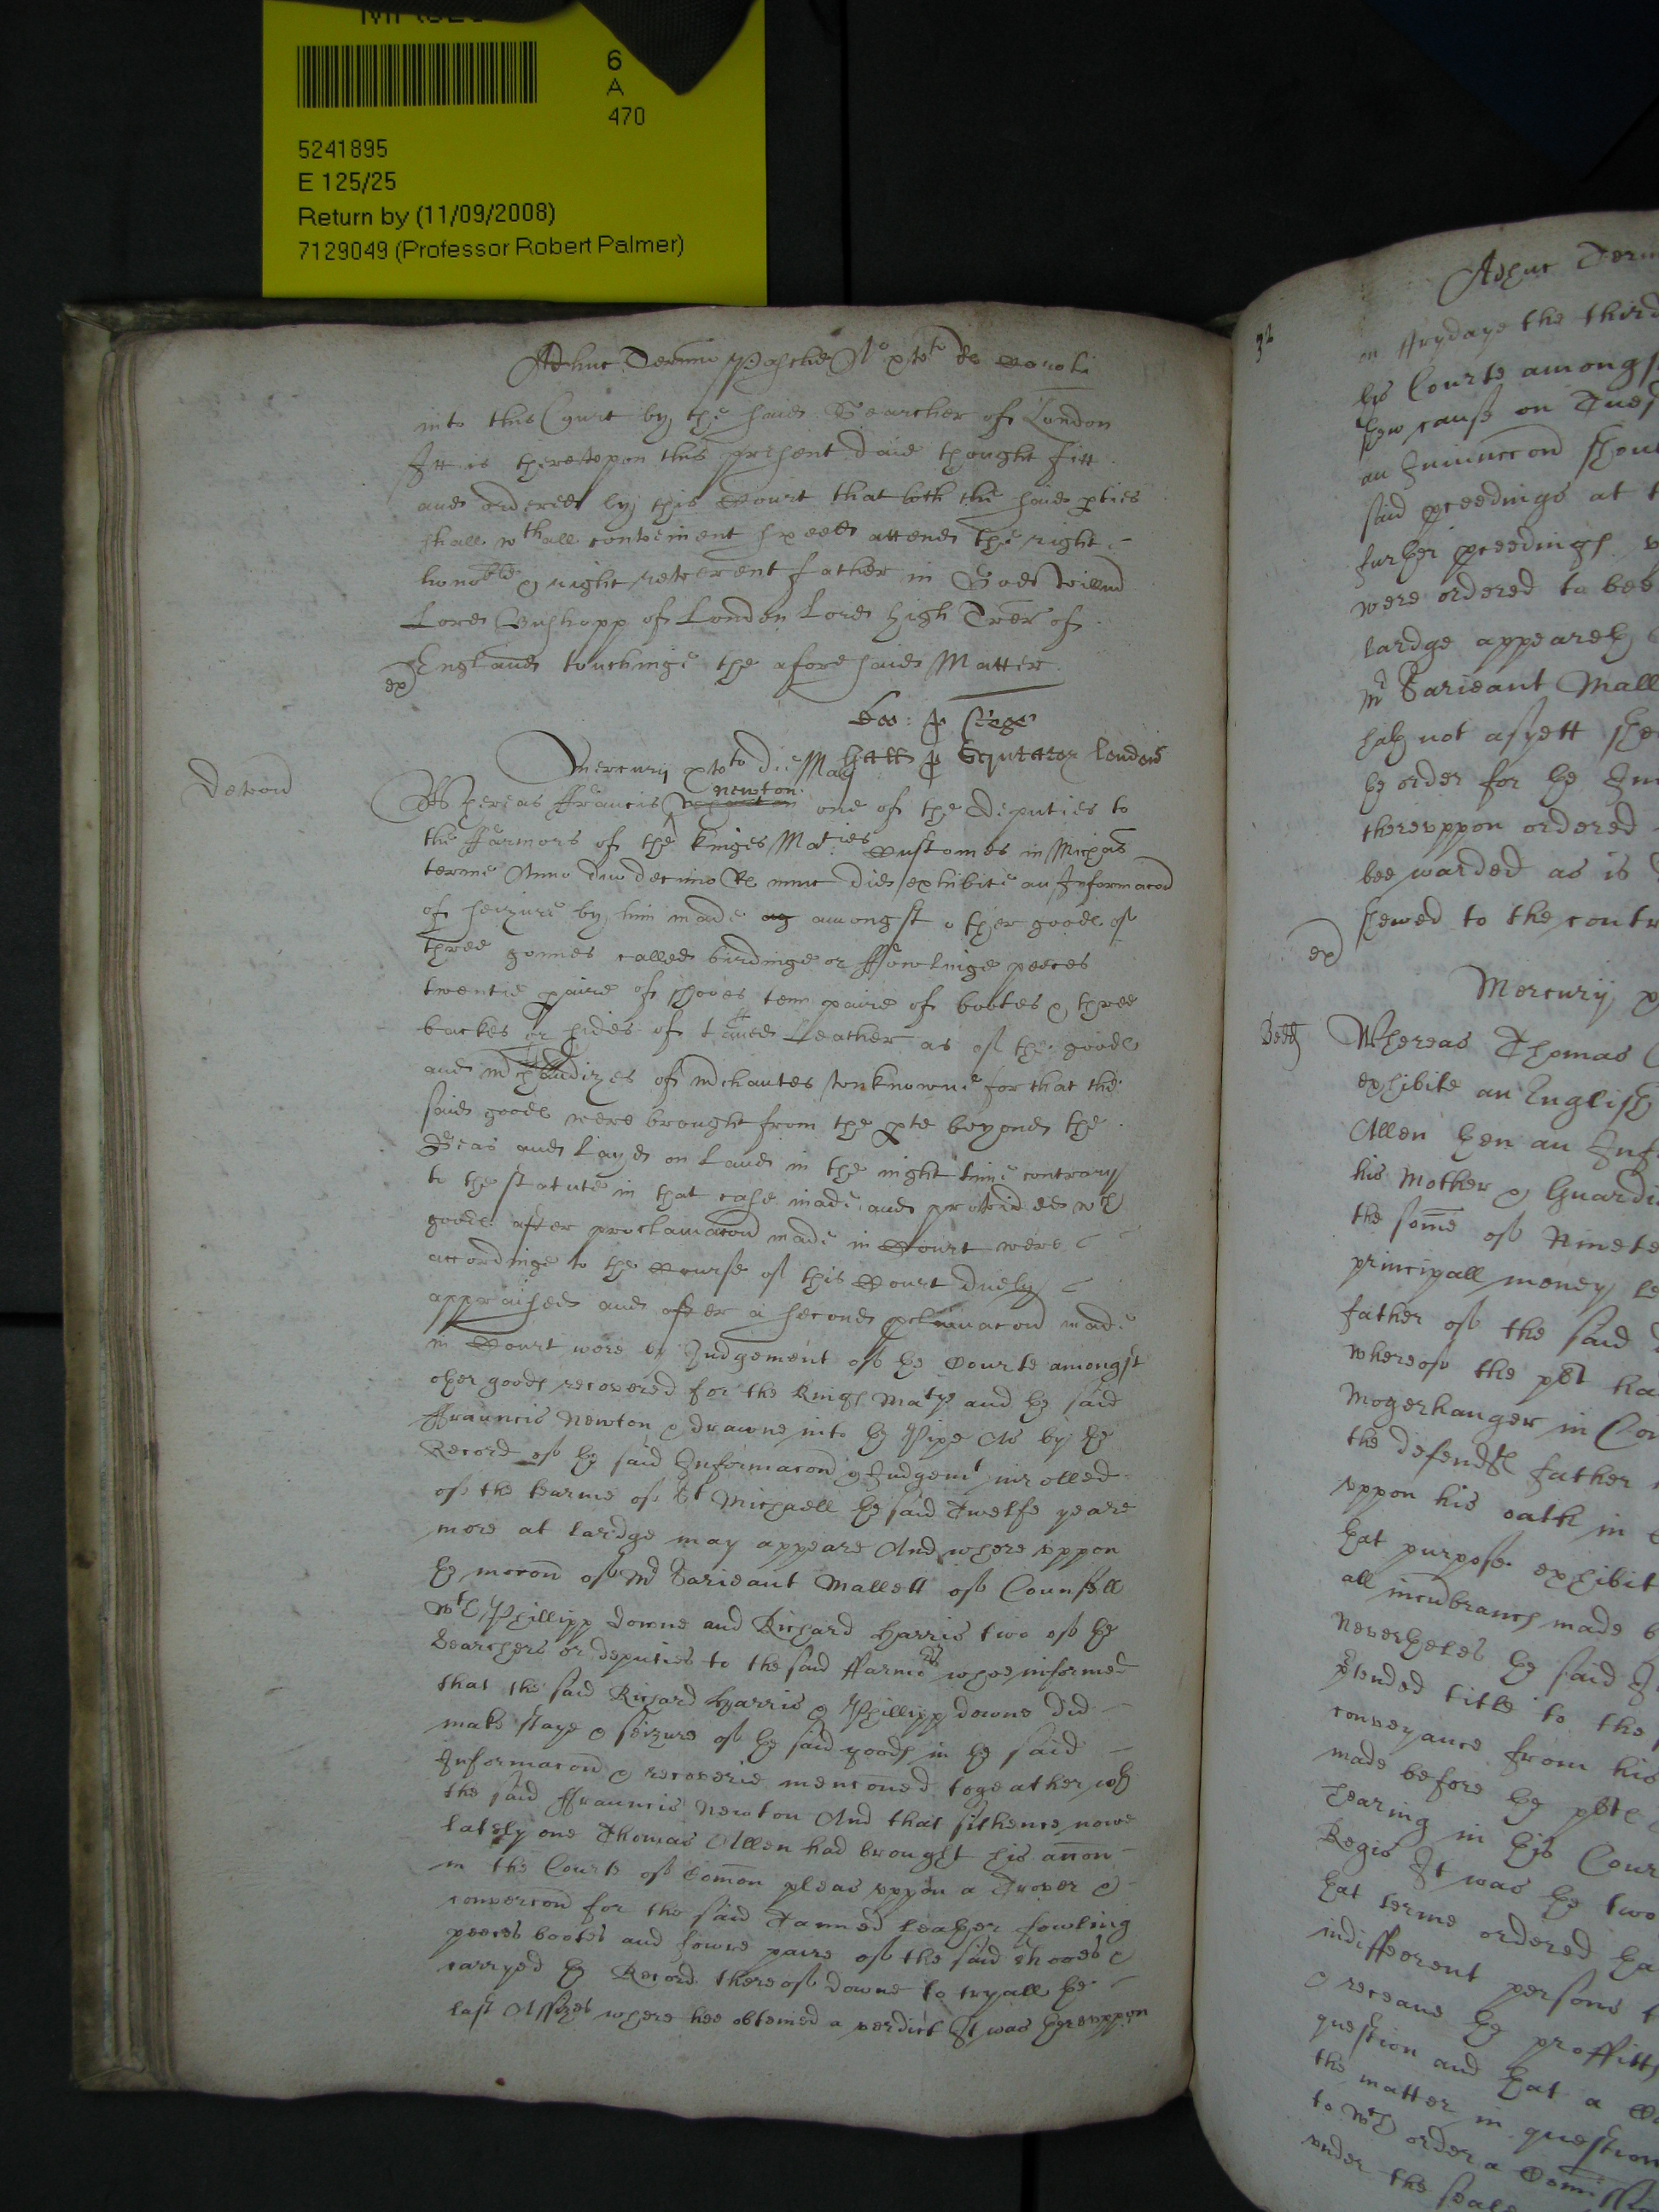 6
A
470
5241895
E 125/25
Return by (11/09/2008)
7129049 (Professor Robert Palmer)
Adhuc Termino Pasche Ao xiiito
into this Court by the said Searcher of London
Itt is therevpon this present daie thought fitt
and ordered by this Court that both the said pties
shall wth all convenient speede attend the right
honoble & right reverent father in God William
Lord Bushopp of London Lord high Trer of
England touchinge the aforesaid Matter
ex
Mercurij xiiito die Maij
Devon
Whereas Francis newton one of the Deputies to
the Farmors of the Kinges Maties Customes in Michas
terme Anno duodecimo Rs nunc did exhibite an Informacon
of seizure by him made ag amongst other goods of
three gonnes called birdinge or ffowlinge peeces
twentie paire of shooes tenn paire of bootes & three
backes or hides of tanned Leather as of the goods
and mchandizes of mchantes vnknowne for that the
said goods were brought from the pte beyond the
Seas and layd on land in the night time contrary
to the statute in that case made and provided wch
goods after proclamacon made in Court were
accordinge to the Course of this Court duely
appraised and after a second pclamacon made
in Court were by Judgement of the Courte amongst
other goods recovered for the Kings Matye and the said
Frauncis Newton & drawne into the Pipe As by the
Record of the said Informacon & Judgemt inrolled
of the tearme of St Michaell the said Twelfe yeare
more at lardge may appeare And where vppon
the mocon of Mr Sarieant Mallett of Counsell
wth Phillipp Downe and Richard Harris two of the
Searchers or deputies to the said Farmors whoe informed
that the said Richard Harris & Phillipp Downe did
make staye & seizure of the said goods in the said
Informacon & recoverie mencioned togeather wth
the said Frauncis Newton And that sithence nowe
lately one Thomas Allen had brought his accon
in the Courte of Comon pleas vppon a Trover &
convercon for the said Tanned leather fowling
peeces bootes and fowre paire of the said shooes &
carryed the Record thereof downe to tryall the
last Assizes where hee obteined a verdict It was therevppon
32
Adhuc Term
on Frydaye the third
this Courte amongst
shew cause on Tues
an Iniunccon shoul
said pceedings at t
further pceedings
were ordered to bee
lardge appeareth
Mr Sarieant Mall
hath not as yett she
the order for the Inj
therevppon ordered
bee warded as is
shewed to the contr
ex
Mercurij
Bedd
Whereas Thomas
exhibite an English
Allen then an Inf
his Mother & Guardi
the some of Ninete
principall money le
father of the said
whereof the plt ha
Mogerhanger in Cou
the defendts father
vppon his oath in
that purpose exhibit
all incumbrances made b
Neverthelesse the said
ptended title to the
conveyance from his
made before the plte
hearing in this Cour
Regis It was the two
that terme ordered tha
indifferent persons t
& receave the proffitts
question and that a Co
the matter in question
to wch order a Comission
vnder the seale